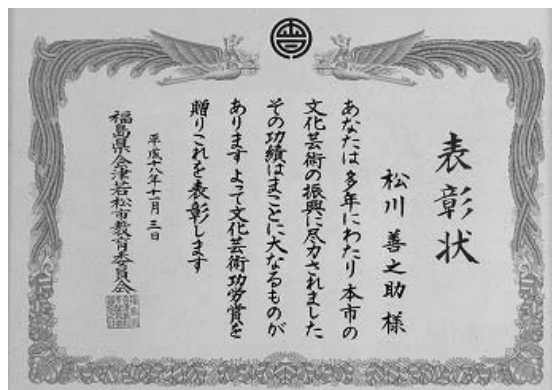 表彰状
松川善之助様
あなたは多年にわたり本市の
文化芸術の振興に尽力されました
その功績はまことに大なるものが
あります よって文化芸術功労賞を
贈りこれを表彰します
平成十八年十一月三日
福島県会津若松市教育委員会